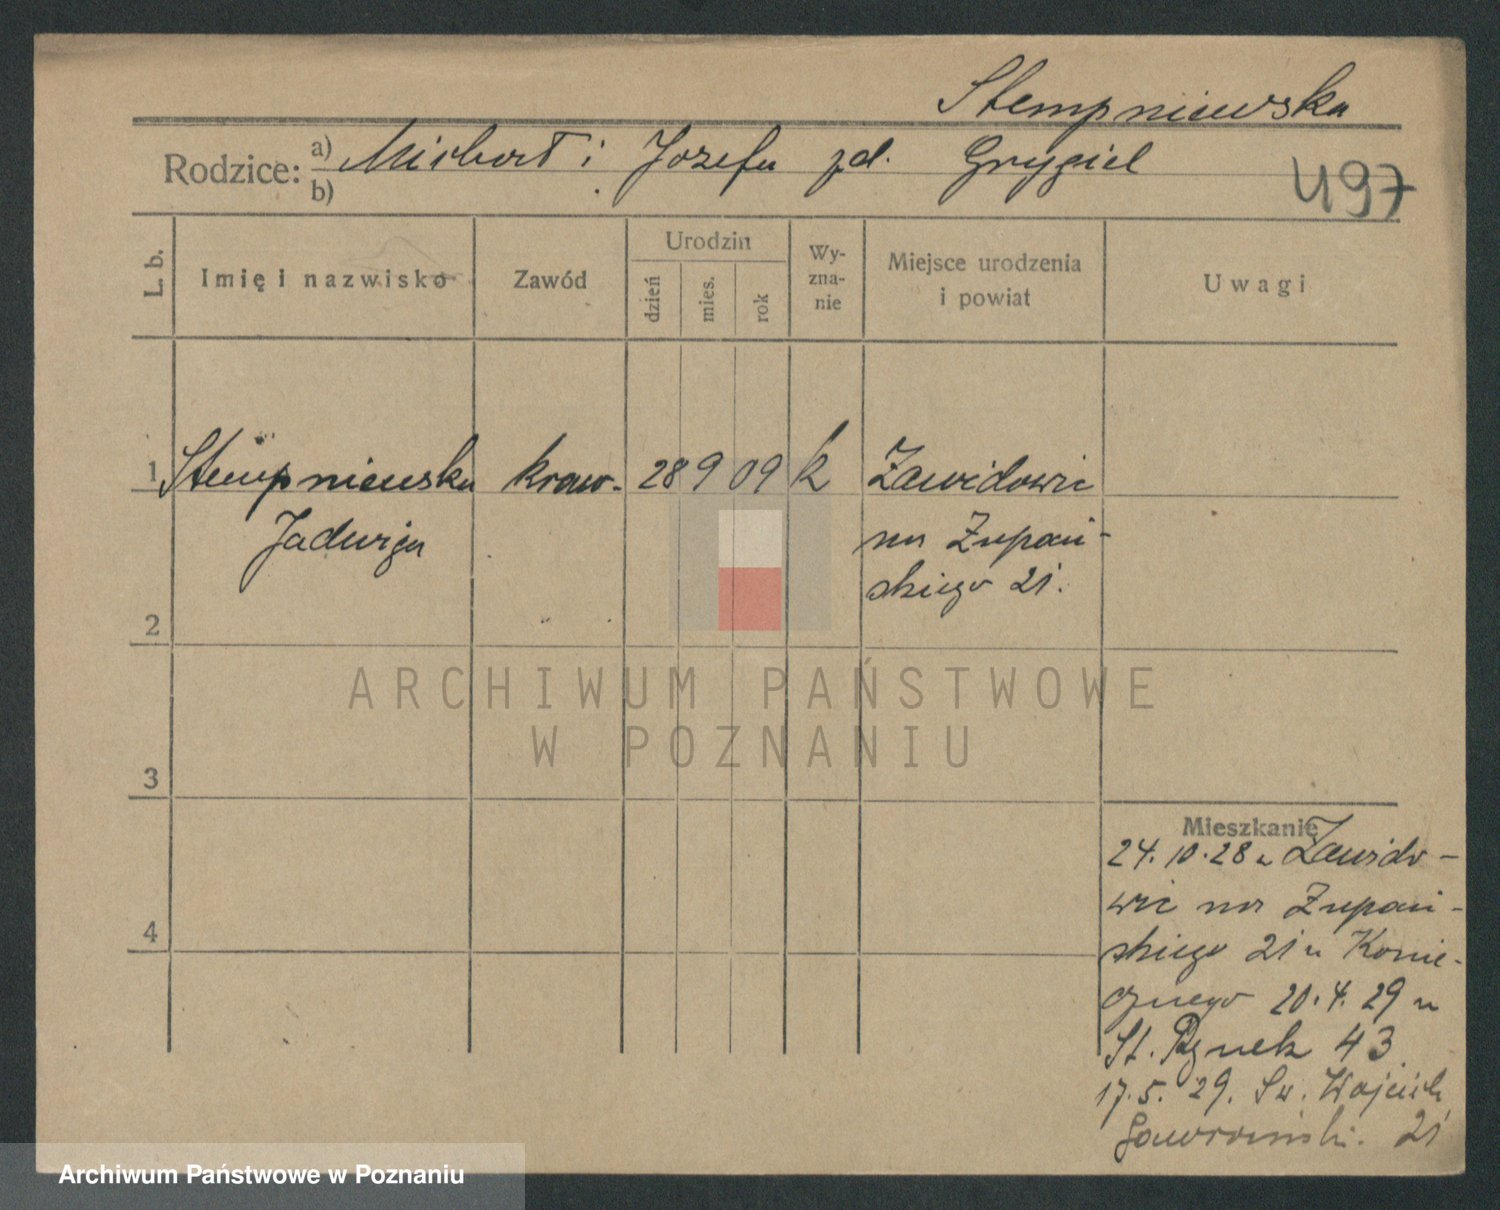 Stempniewska
Rodzice: a) Michał i Józefa zd. Grygiel
b)
497
L. b. Imię i nazwisko Zawód Urodzin dzień mies. rok Wyznanie Miejsce urodzenia i powiat Uwagi
1 Stempniewska kraw. 28 9 09 k Zawidowic
Jadwiga na Zupań-
skiego 21.
2
ARCHIWUM PAŃSTWOWE
W POZNANIU
3
Mieszkanie
24.10.28 z Zawido-
wic na Zupań-
skiego 21 u Konie-
cznego 20.4.29 u
St. Rynek 43
17.5.29. Św. Wojciech
21
4
Archiwum Państwowe w Poznaniu